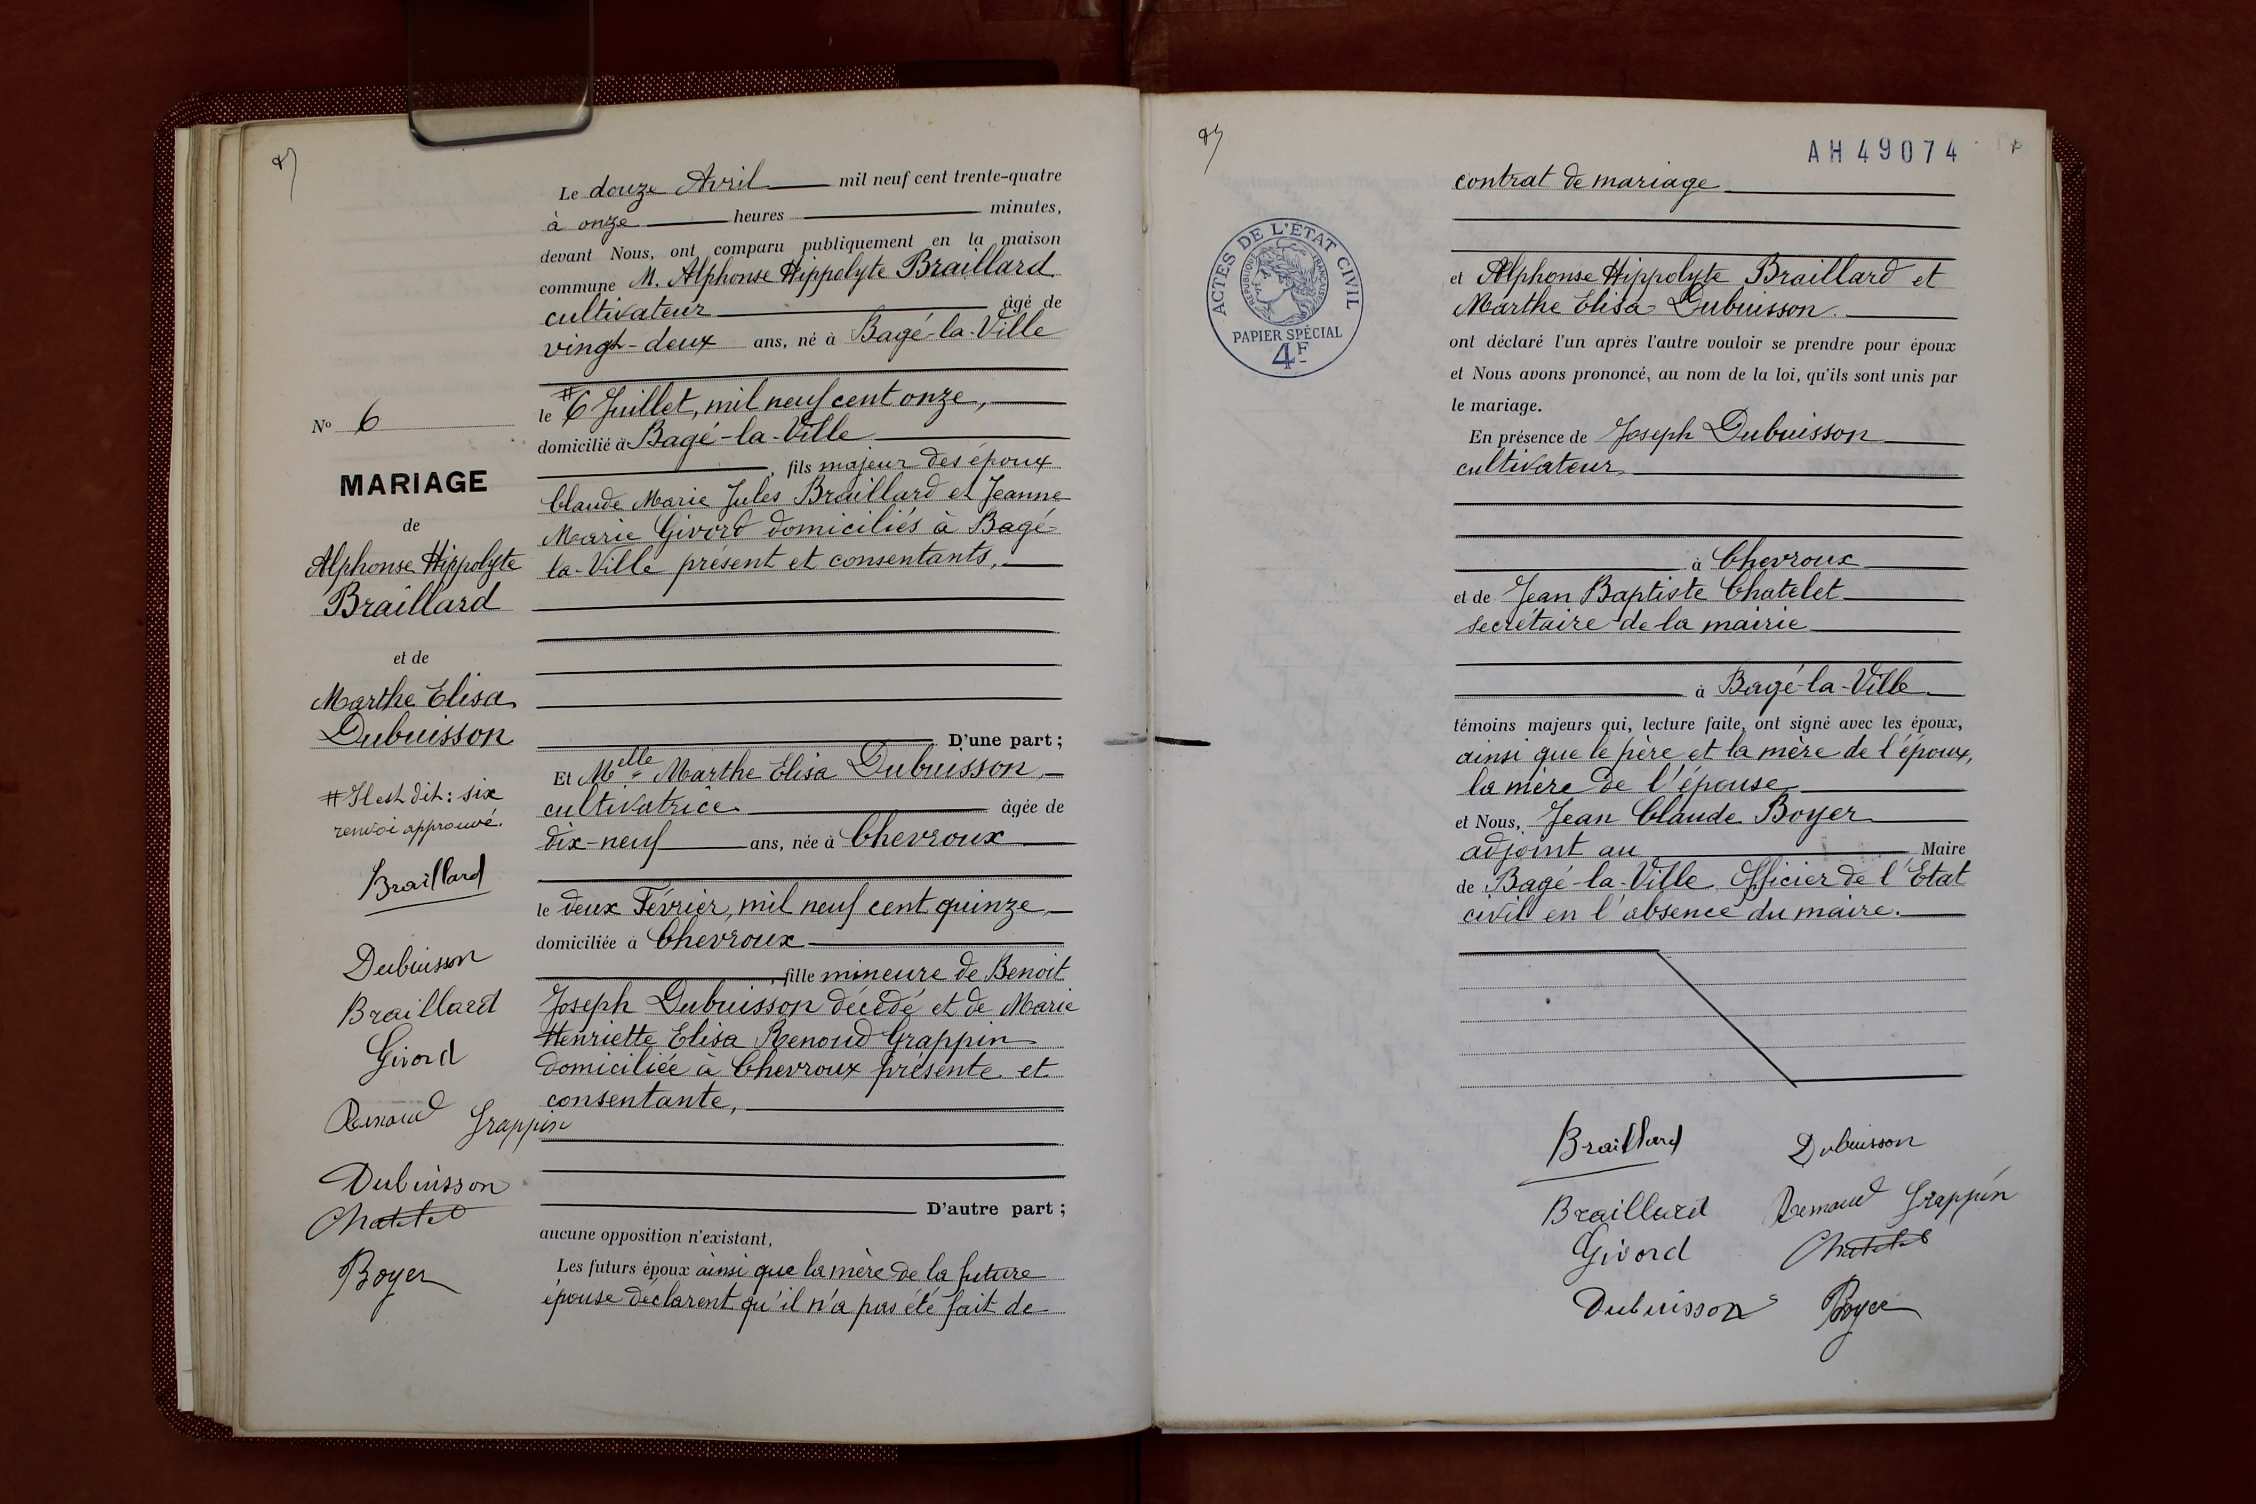 Le douze Avril mil neuf cent trente-quatre
à onze heures minutes,
devant Nous, ont comparu publiquement en la maison
commune M. Alphonse Hippolyte Braillard
cultivateur âgé de
vingt-deux ans, né à Bagé-la-Ville
le # 6 Juillet, mil neuf cent onze,
domicilié à Bagé-la-Ville
, fils majeur des époux
Claude Marie Jules Braillard et Jeanne
Marie Givord domiciliés à Bagé-
la-Ville présent et consentants,
D'une part ;
Et Melle Marthe Elisa Dubuisson
cultivatrice âgée de
dix-neuf ans, née à Chevroux
le deux Février, mil neuf cent quinze
domiciliée à Chevroux
, fille mineure de Benoit
Joseph Dubuisson décédé et de Marie
Henriette Elisa Renoud Grappin
domiciliée à Chevroux présente et
consentante,
D'autre part ;
aucune opposition n'existant,
Les futurs époux ainsi que la mère de la future
épouse déclarent qu'il n'a pas été fait de
No 6
MARIAGE
de
Alphonse Hippolyte
Braillard
et de
Marthe Elisa
Dubuisson
# Il est dit : six
renvoi approuvé.
Braillard
Dubuisson
Braillard
Givord
Renoud Grappin
Dubuisson
Chatelet
Boyer
AH 49074
ACTES DE L'ÉTAT CIVIL
RÉPUBLIQUE FRANÇAISE
PAPIER SPÉCIAL
4F
contrat de mariage
et Alphonse Hippolyte Braillard et
Marthe Elisa Dubuisson
ont déclaré l'un après l'autre vouloir se prendre pour époux
et Nous avons prononcé, au nom de la loi, qu'ils sont unis par
le mariage.
En présence de Joseph Dubuisson
cultivateur
à Chevroux
et de Jean Baptiste Chatelet
secrétaire de la mairie
à Bagé-la-Ville
témoins majeurs qui, lecture faite, ont signé avec les époux,
ainsi que le père et la mère de l'époux,
la mère de l'épouse
et Nous, Jean Claude Boyer
adjoint au Maire
de Bagé-la-Ville Officier de l'Etat
civil en l'absence du maire.
Braillard Dubuisson
Braillard Renoud Grappin
Givord Chatelet
Dubuisson Boyer